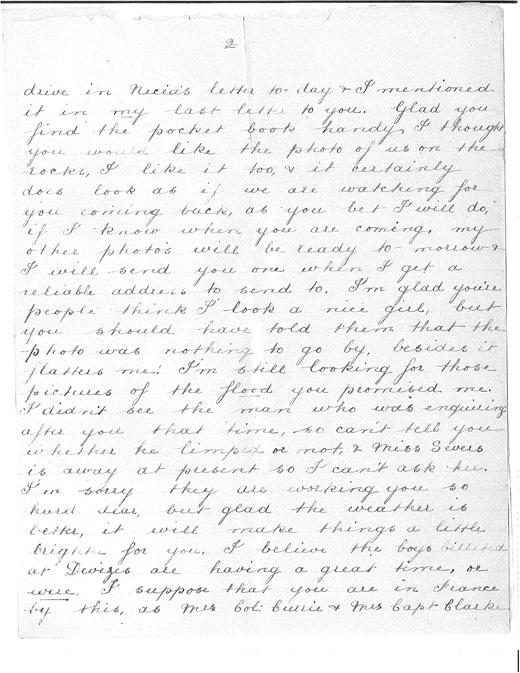 2
drive in Necia's letter to-day & I mentioned
it in my last letter to you. Glad you
find the pocket book handy, I thought
you would like the photo of us on the
rocks, I like it too, & it certainly
does look as if we are watching for
you coming back, as you bet I will do,
if I know when you are coming, my
other photo's will be ready to-morrow &
I will send you one when I get a
reliable address to send to. I'm glad you're
people think I look a nice girl, but
you should have told them that the
photo was nothing to go by, besides it
flatters me! I'm still looking for those
pictures of the flood you promised me.
I didn't see the man who was enquiring
after you that time, so can't tell you
whether he limped or not, & Miss Sivers
is away at present so I can't ask her.
I'm sorry they are working you so
hard dear, but glad the weather is
better, it will make things a little
brighter for you. I believe the boys billeted
at Devizes are having a great time, or
were. I suppose that you are in France
by this, as Mrs Col: Currie & Mrs Capt Clarke